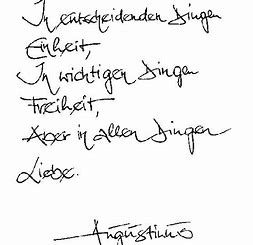 In entscheidenden Dingen
Einheit,
In wichtigen Dingen
Freiheit,
Aber in allen Dingen
Liebe.
Augustinus